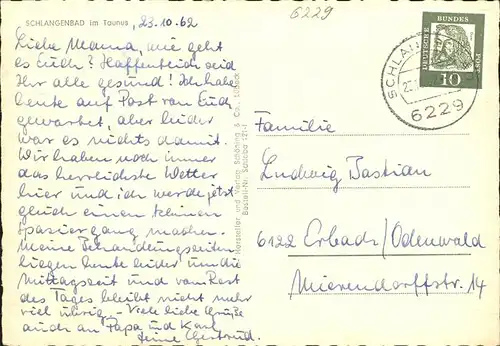 6229
SCHLANGENBAD im Taunus, 23.10.62
Liebe Mama, wie geht
es Euch? Hoffentlich seid
Ihr alle gesund! Ich habe
heute auf Post von Euch
gewartet, aber leider
war es nichts damit.
Wir haben noch immer
das herrlichste Wetter
hier und ich werde jetzt
gleich einen kleinen
Spaziergang machen.
Meine Behandlungszeiten
liegen heute leider um die
Mittagszeit und vom Rest
des Tages bleibt nicht mehr
viel übrig. - Viele liebe Grüße
auch an Papa und Karl
Deine Gertrud.
Hersteller und Verlag Schöning & Co., Lübeck
Bestell-Nr.
DEUTSCHE BUNDESPOST
10
SCHLAN
6229
Familie
Ludwig Bastian
6122 Erbach/Odenwald
Mierendorffstr. 14